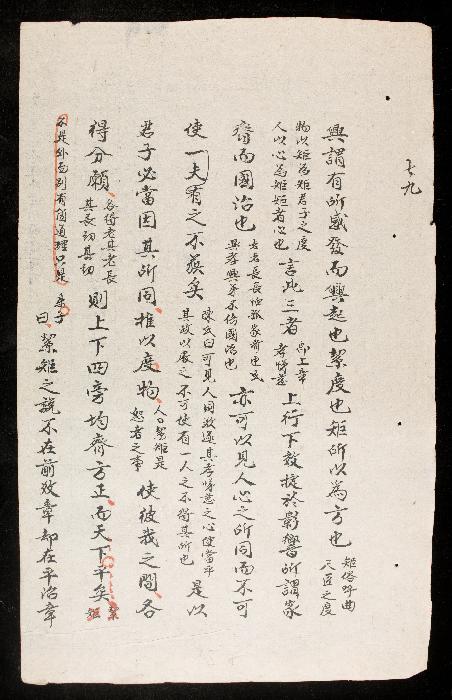 七九
興謂有所感發而興起也絜度也矩所以為方也 矩俗呼曲尺匠之度
物以矩為矩君子之度人以心為矩矩者心也 言此三者 即上章孝悌慈 上行下效捷於影響所謂家
齊而國治也 老老長長恤孤家齊也民興孝興弟不倍國治也 亦可以見人心之所同而不可
使一夫有之不獲矣 陳氏曰可見人同欲遂其孝悌慈之心使當平其政以處之不可使有一人之不得其所也 是以
君子必當因其所同推以度物 人曰絜矩是恕者之事 使彼我之間各
得分願 各得老其老長其長幼其幼 則上下四旁均齊方正而天下平矣 絜矩
不是外面別有箇道理只是 朱子曰絜矩之說不在前效章却在平治章